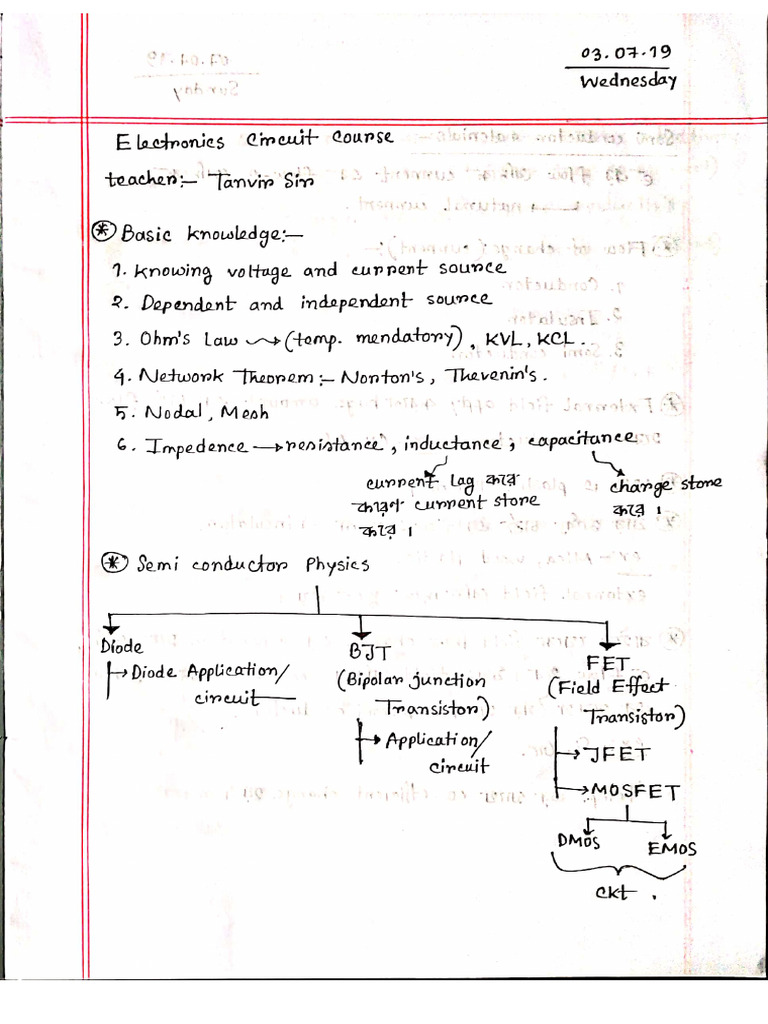 03.07.19
Wednesday
Electronics Circuit Course
teacher:- Tanvir Sir
* Basic knowledge:-
1. Knowing voltage and current source
2. Dependent and independent source
3. Ohm's Law → (temp. mendatory), KVL, KCL.
4. Network Theorem:- Norton's, Thevenin's.
5. Nodal, Mesh
6. Impedence → resistance, inductance, capacitance
current lag করে
কারণ current store
করে।
charge store
করে।
* Semi conductor Physics
Diode
→ Diode Application/
circuit
BJT
(Bipolar junction
Transistor)
→ Application/
circuit
FET
(Field Effect
Transistor)
→ JFET
→ MOSFET
DMOS EMOS
ckt.